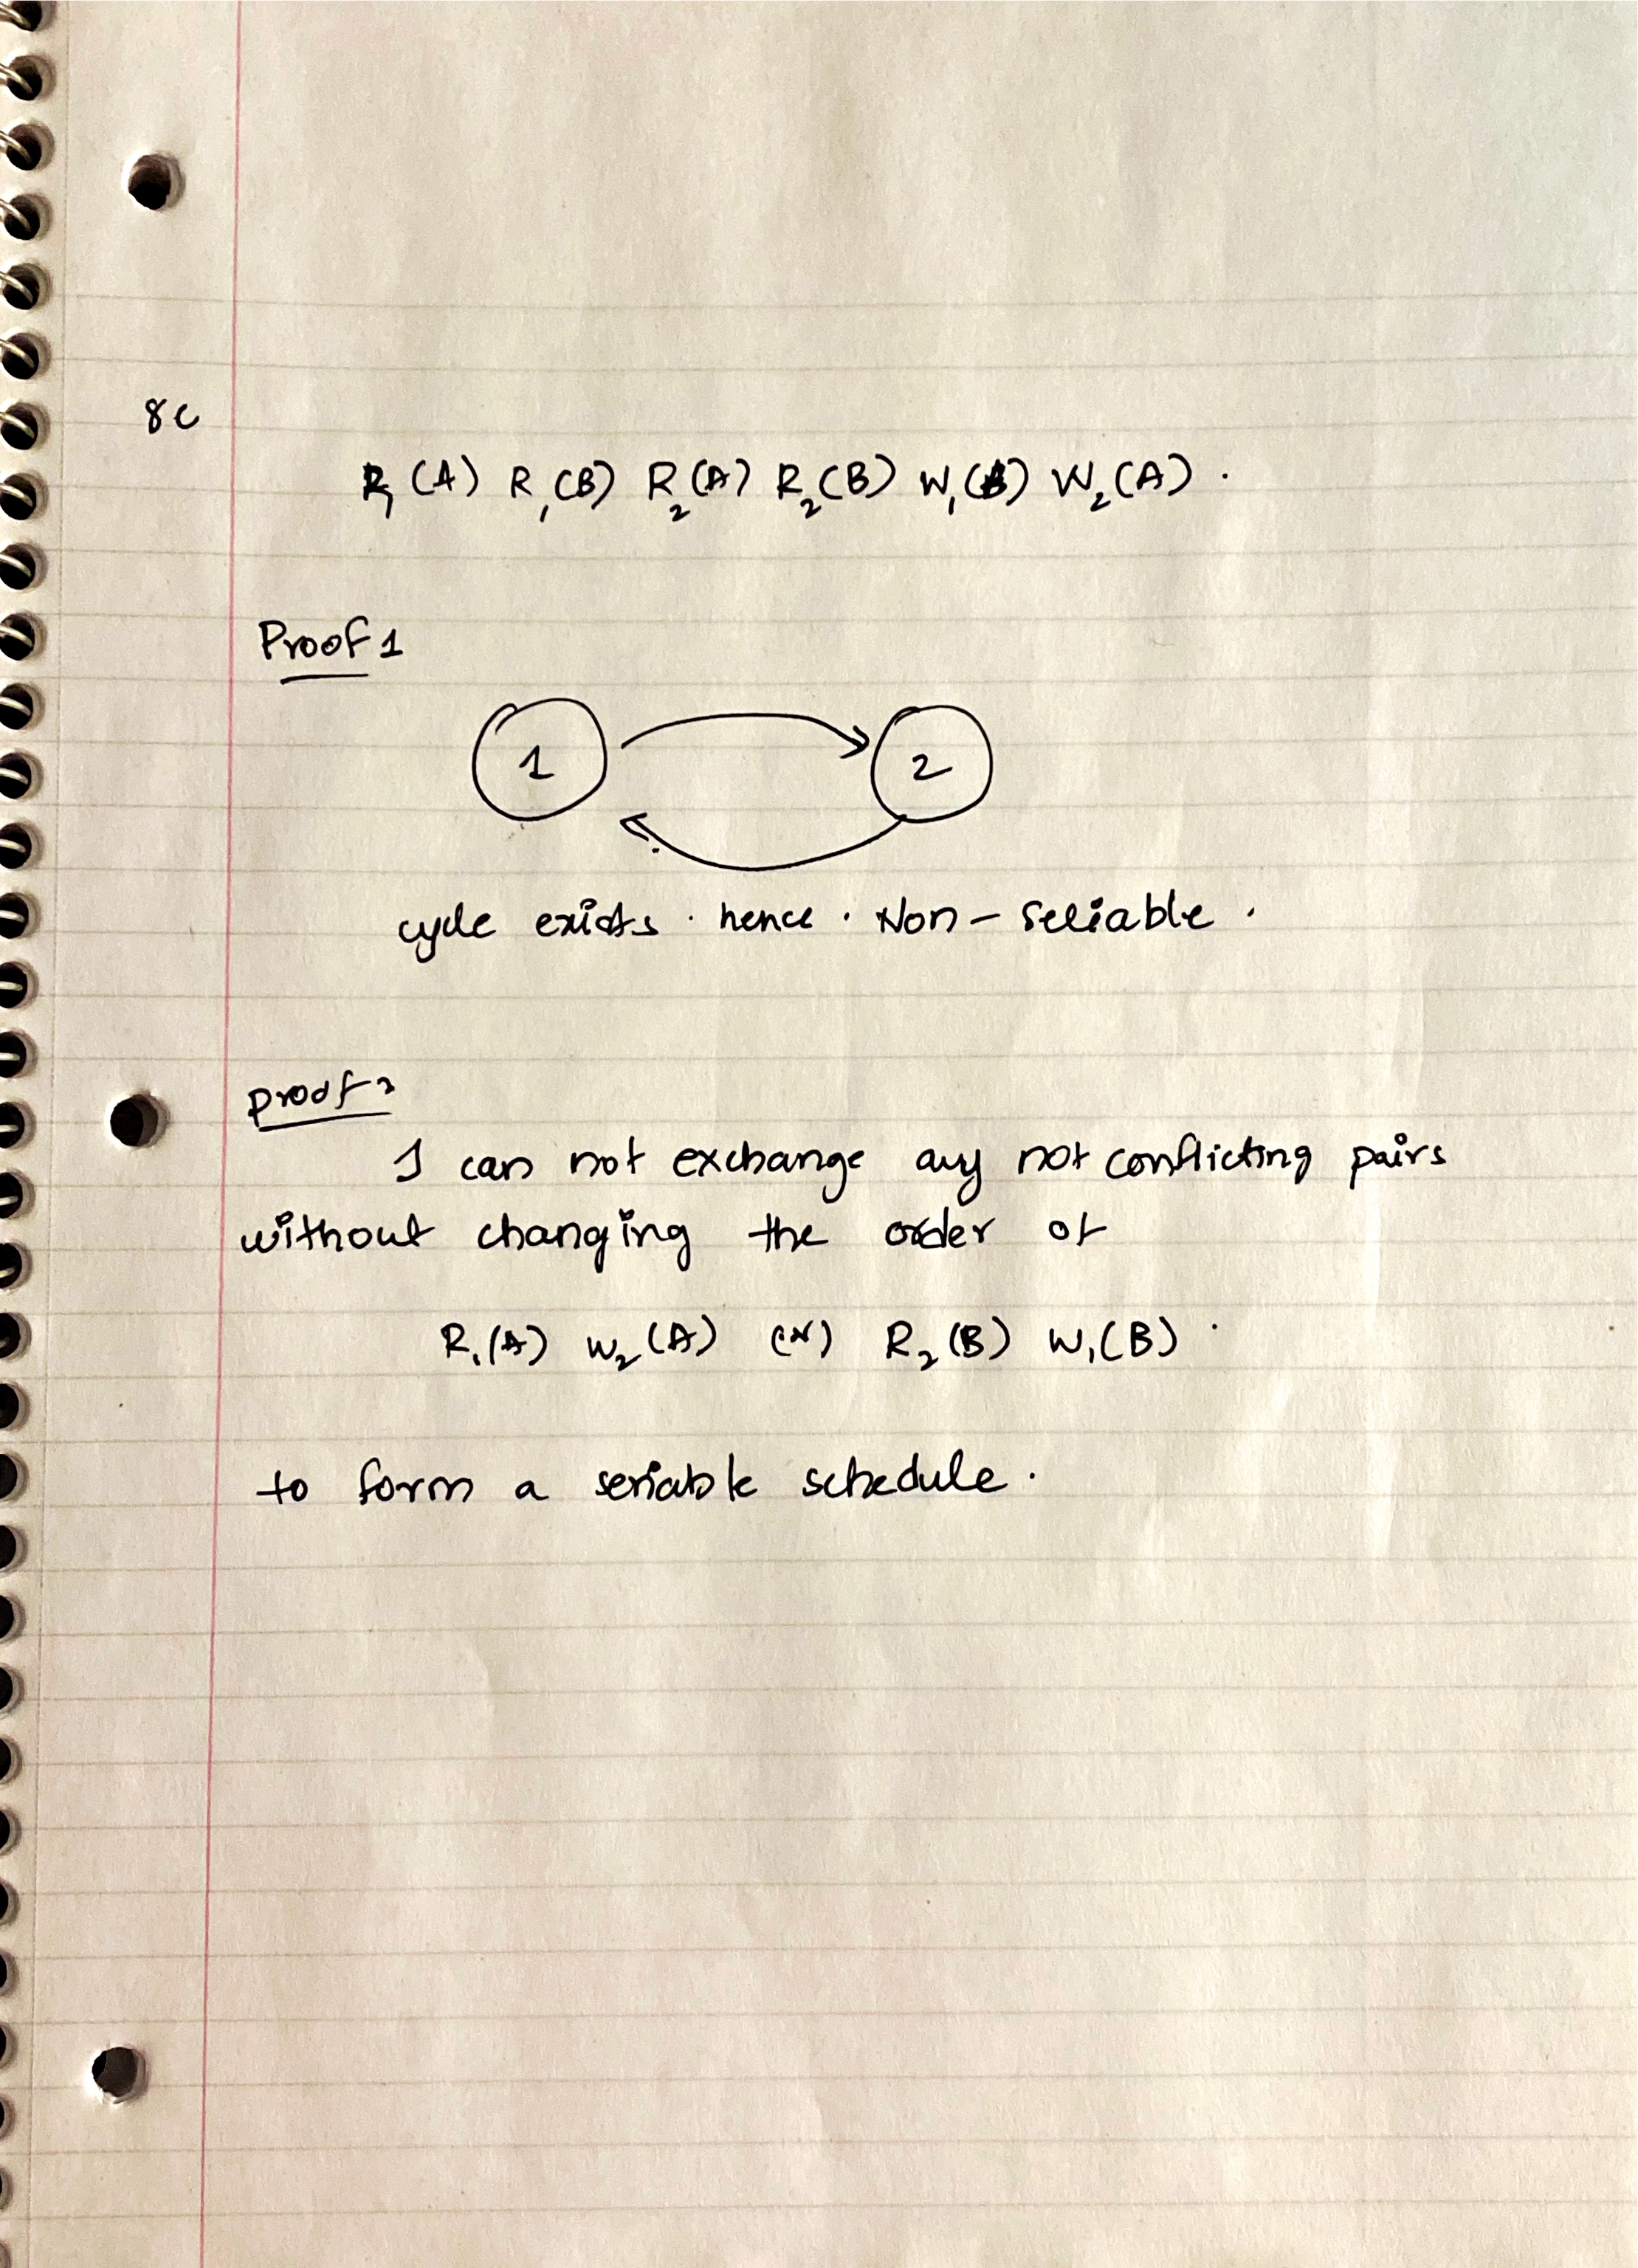 8c
R₁(A) R₁(B) R₂(A) R₂(B) W₁(B) W₂(A).
Proof 1
1 2
cycle exists. hence. Non-seliable.
proof 2
I can not exchange any not conflicting pairs
without changing the order of
R₁(A) W₂(A) (or) R₂(B) W₁(B).
to form a seriable schedule.